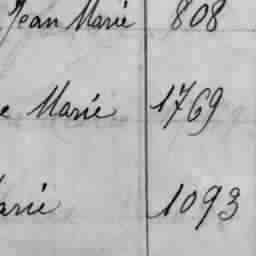 Jean Marie 808
e Marie 1769
arie 1093